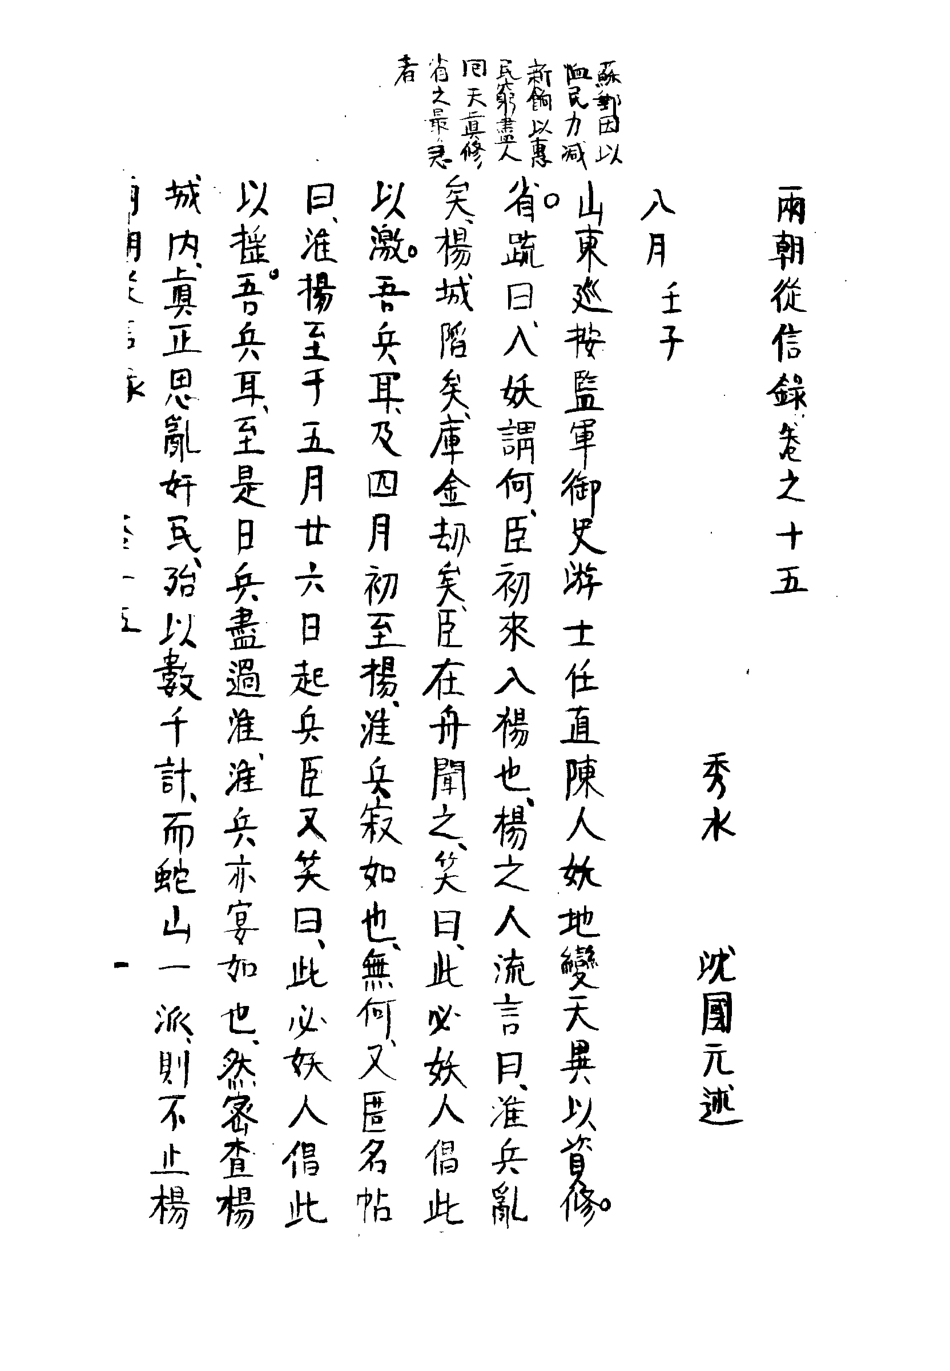 兩朝從信錄卷之十五
秀水 沈國元述
八月 壬子
蘇郵因以
恤民力減
新餉以惠
民窮盡人
囘天眞修
省之最急
者
山東廵按監軍御史游士任直陳人妖地變天異以資修。
省。疏曰、人妖謂何、臣初來入楊也、楊之人流言曰、淮兵亂
矣、楊城陷矣、庫金刼矣、臣在舟聞之、笑曰、此必妖人倡此
以激。吾兵耳、及四月初至揚、淮兵寂如也、無何、又匿名帖
曰、淮揚至于五月廿六日起兵臣又笑曰、此必妖人倡此
以搖。吾兵耳、至是日兵盡過淮、淮兵亦宴如也、然密查楊
城内、眞正思亂奸民、殆以數千計、而蛇山一派、則不止楊